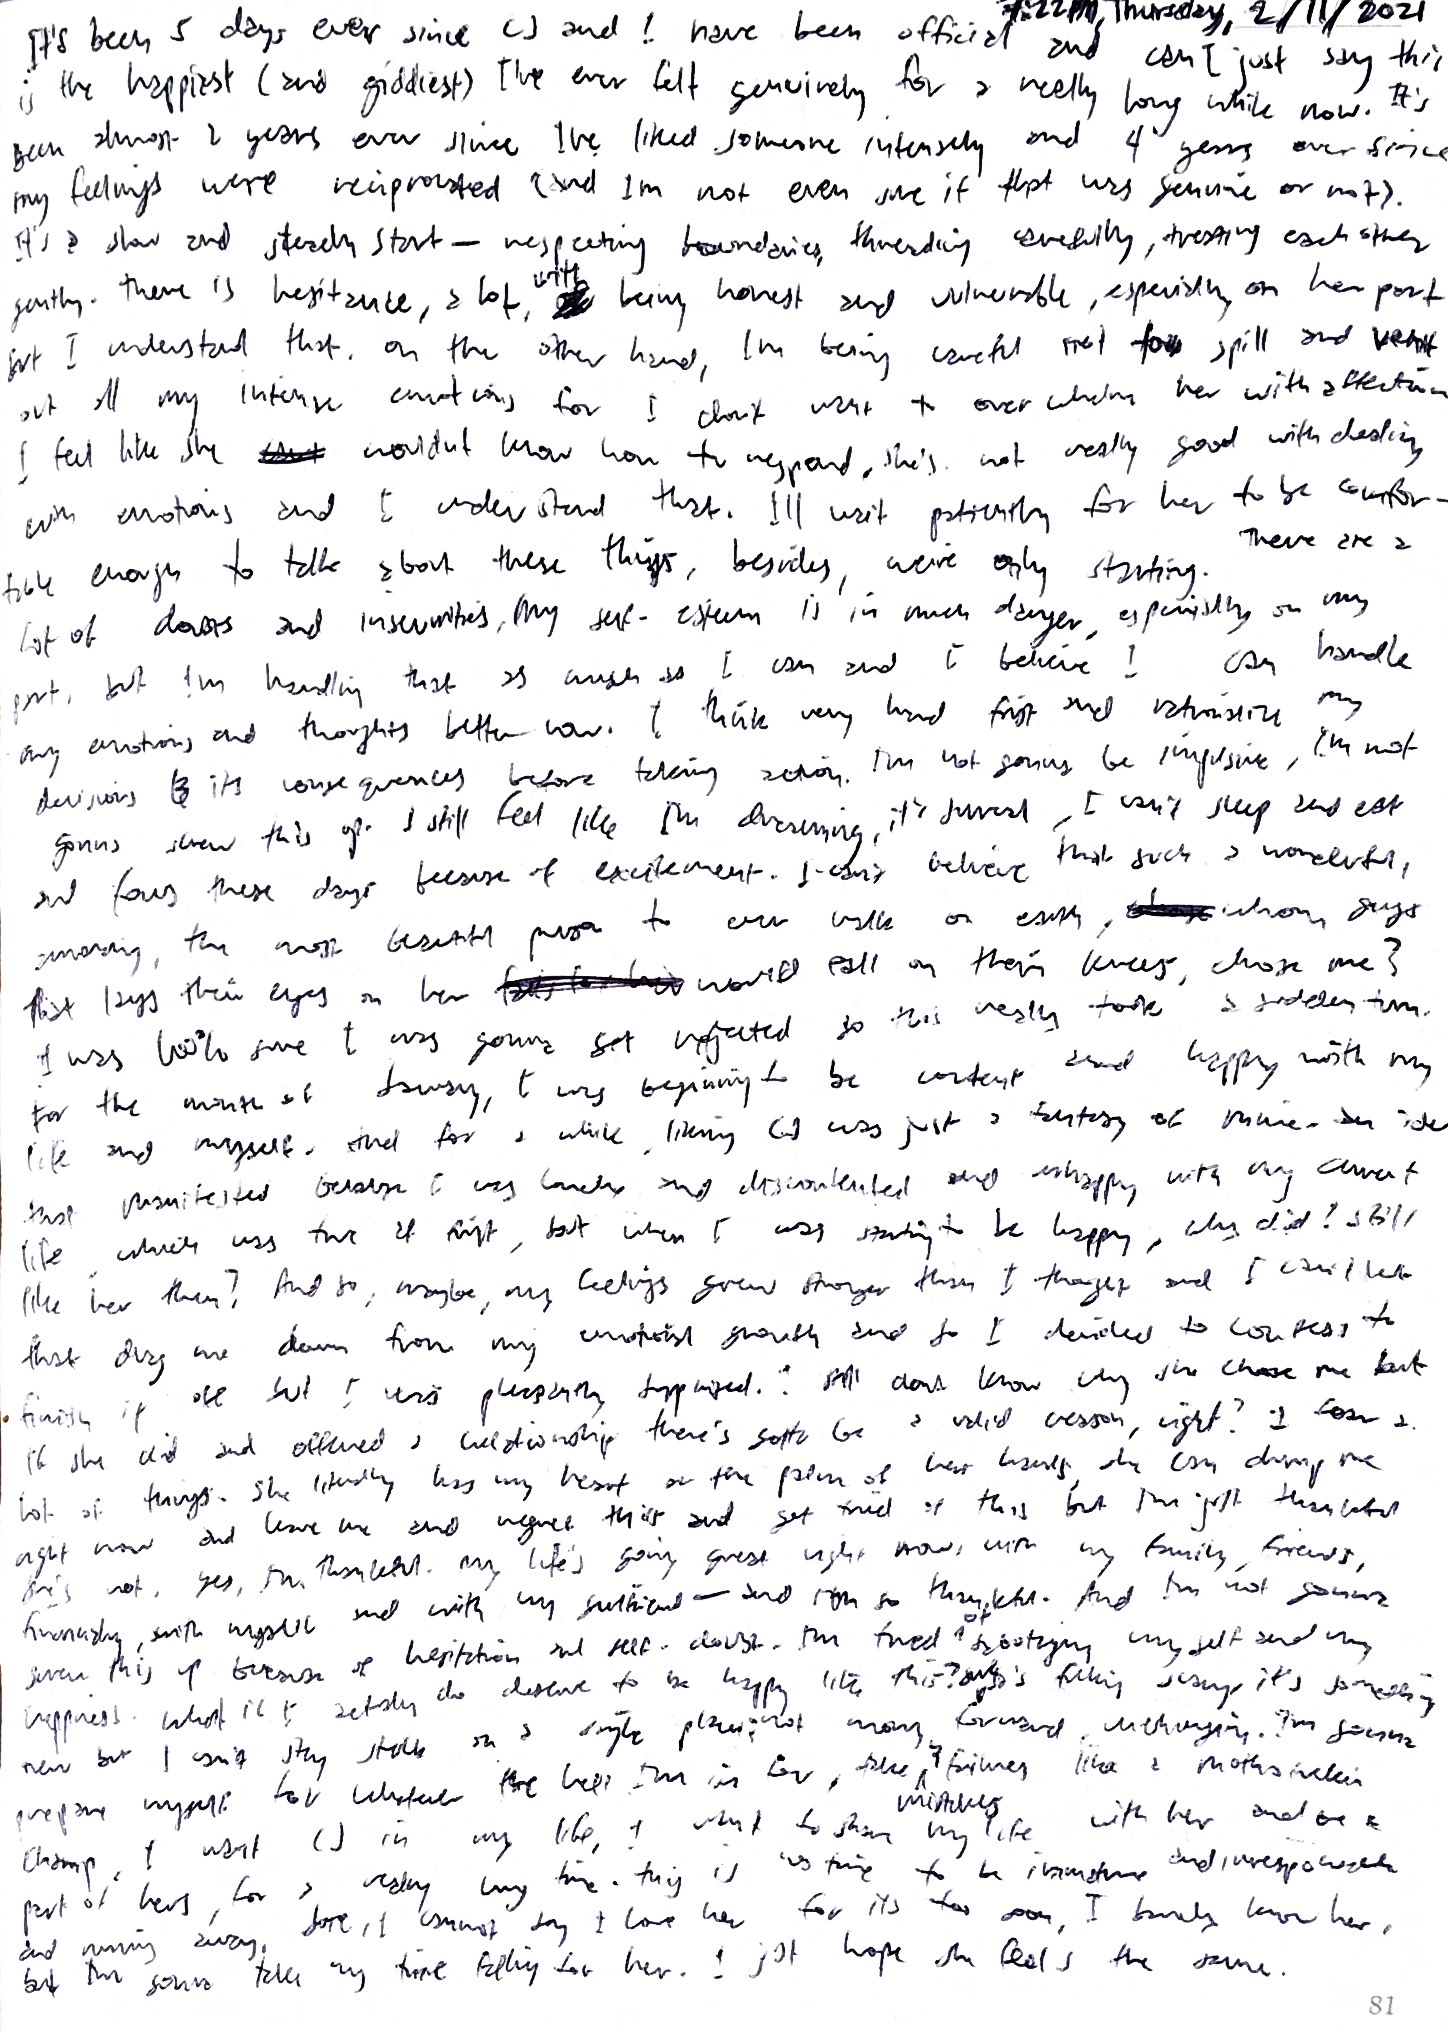 7:22PM, Thursday, 2/11/2021
It's been 5 days ever since CJ and I have been official and can I just say this
is the happiest (and giddiest) I've ever felt genuinely for a really long while now. It's
been almost 2 years ever since I've liked someone intensely and 4 years ever since
my feelings were reciprocated (and I'm not even sure if that was genuine or not).
It's a slow and steady start — respecting boundaries, threading carefully, treating each other
gently. There is hesitance, a lot, with being honest and vulnerable, especially on her part
but I understand that. On the other hand, I'm being careful not to spill and vomit
out all my intense emotions for I don't want to overwhelm her with affection
I feel like she wouldn't know how to respond, she's not really good with dealing
with emotions and I understand that. I'll wait patiently for her to be comfor-
table enough to talk about these things, besides, we're only starting. There are a
lot of doubts and insecurities, my self-esteem is in much danger, especially on my
part, but I'm handling that as much as I can and I believe I can handle
my emotions and thoughts better now. I think very hard first and rationalize my
decisions & its consequences before taking action. I'm not gonna be impulsive, I'm not
gonna screw this up. I still feel like I'm dreaming, it's surreal, I can't sleep and eat
and focus these days because of excitement. I can't believe that such a wonderful,
amazing, the most beautiful person to ever walk on earth, whom guys
that lays their eyes on her would fall on their knees, chose me?
I was 100% sure I was gonna get rejected so this really took a sudden turn.
For the month of January, I was beginning to be content and happy with my
life and myself. And for a while, liking CJ was just a fantasy of mine - an idea
that manifested because I was lonely and discontented and unhappy with my current
life, which was true at first, but when I was starting to be happy, why did I still
like her then? And so, maybe, my feelings grew stronger than I thought and I can't let
that drag me down from my emotional growth and so I decided to confess to
finish it off but I was pleasantly surprised. I still don't know why she chose me but
if she did and offered a relationship there's gotta be a valid reason, right? I fear a
lot of things. She literally has my heart on the palm of her hands, she can dump me
right now and leave me and regret this and get tired of this but I'm just thankful
she's not. Yes, I'm thankful. My life's going great right now, with my family, friends,
financially, with myself and with my girlfriend — and I'm so thankful. And I'm not gonna
screw this up because of hesitation and self-doubt. I'm tired of sabotaging myself and my
happiness. What if I actually do deserve to be happy like this? It's fucking scary, it's something
new but I can't stay stuck on a single place, not moving forward, unchanging. I'm gonna
prepare myself for whatever the hell I'm in for, take mistakes & failures like a mothafuckin
champ, I want CJ in my life, I want to share my life with her and be a
part of hers, for a really long time. This is no time to be immature and irresponsible
and running away. Sure, I cannot say I love her for it's too soon, I barely know her,
but I'm gonna take my time falling for her. I just hope she feels the same.
81